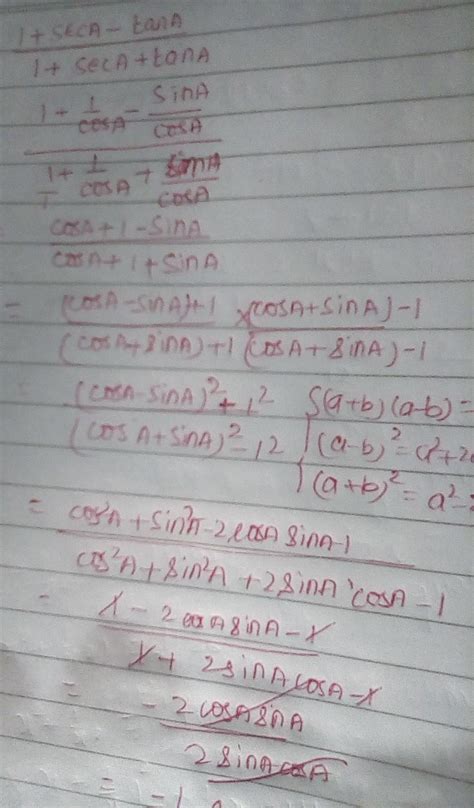 1+secA-tanA
1+secA+tanA
1+ 1/cosA - SinA/cosA
1/1 + 1/cosA + SinA/cosA
cosA+1-SinA
cosA+1+SinA
= (cosA-sinA)+1 x (cosA+sinA)-1
(cosA+sinA)+1 (cosA+sinA)-1
(cosA-SinA)²+1² {(a+b)(a-b)=
(cosA+SinA)²-12 (a-b)²=a²+2
(a+b)²=a²-
= cos²A+sin²A-2cosA sinA-1
cos²A+Sin²A+2SinA'cosA-1
= 1-2cosAsinA-1
1+2sinAcosA-1
= -2cosAsinA
2sinAcosA
= -1